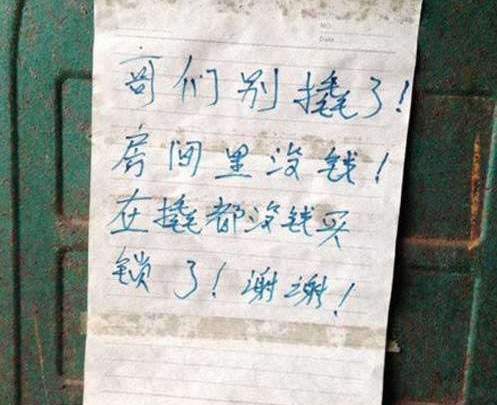 NO.
Date
哥们别撬了！
房间里没钱！
在撬都没钱买
锁了！谢谢！